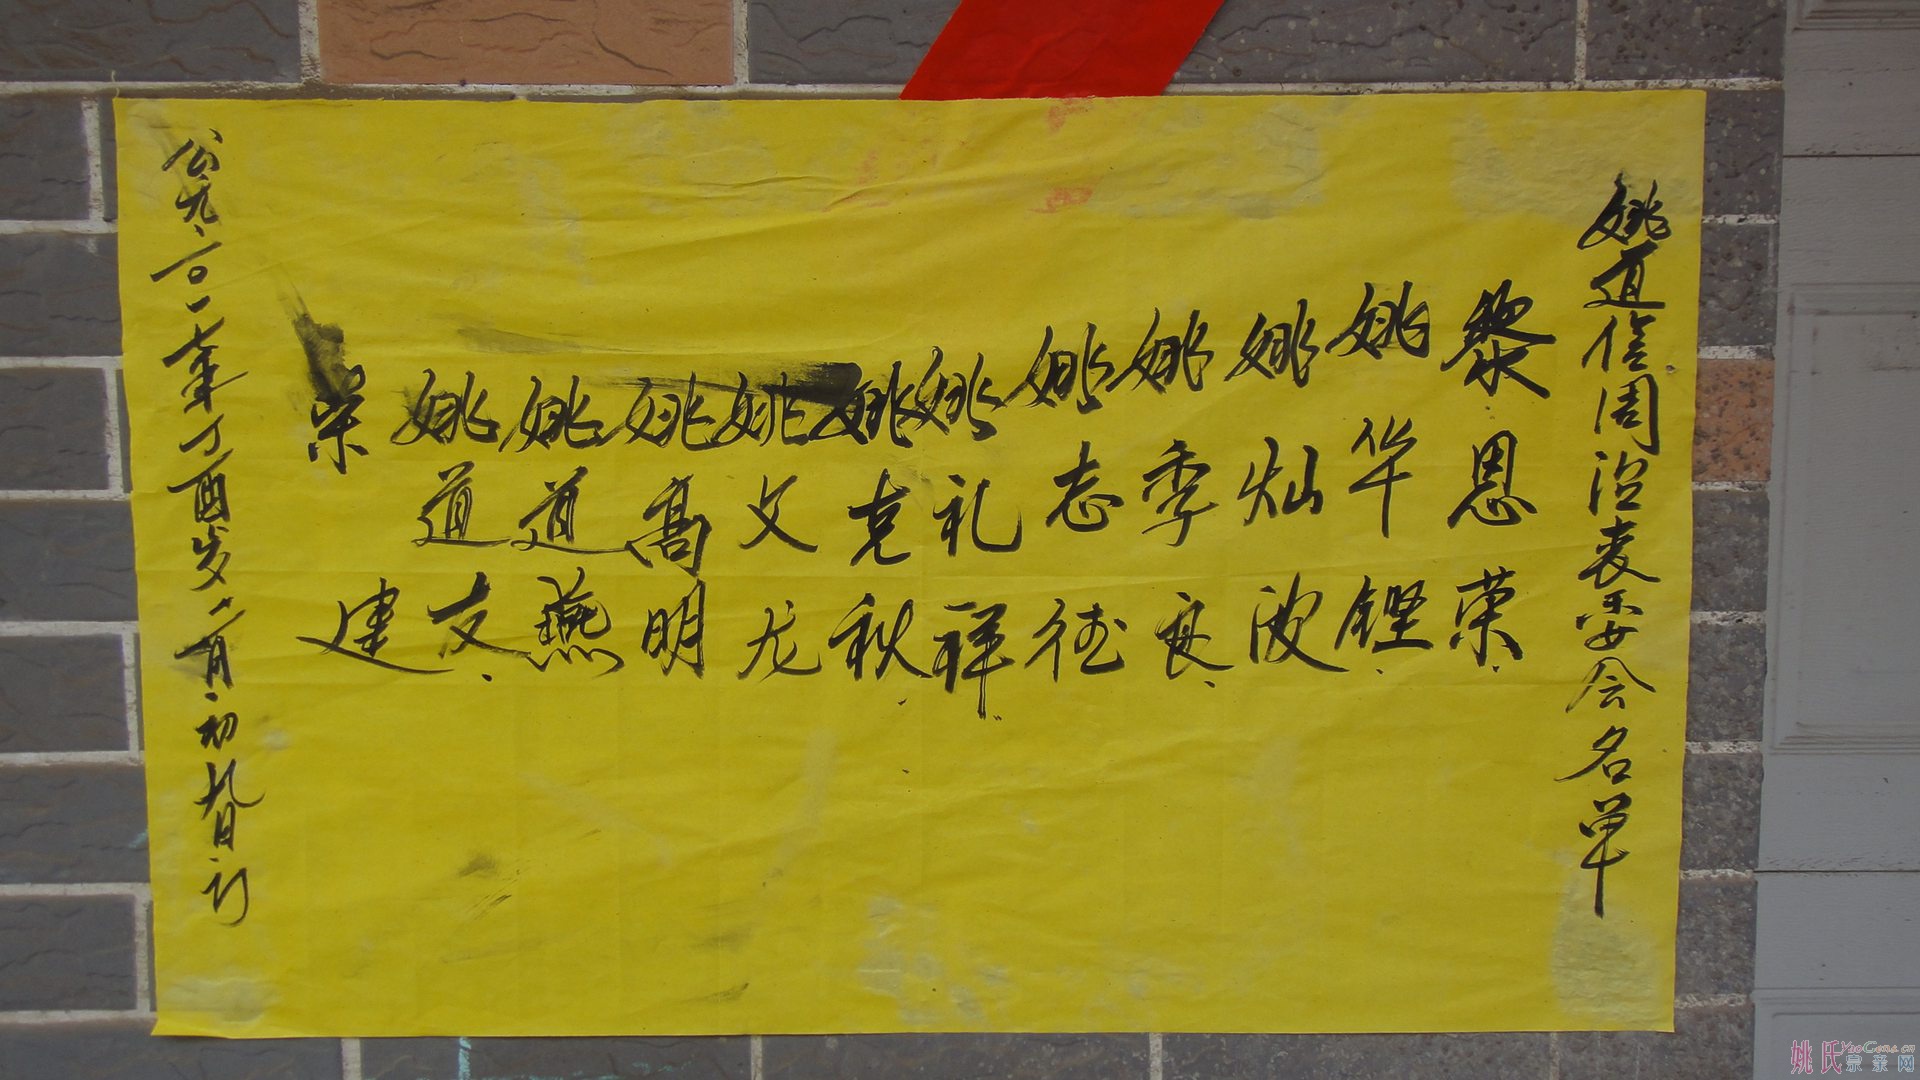 姚道信周治丧委会名单
黎恩荣
姚华铿
姚灿波
姚季良
姚志征
姚礼祥
姚克秋
姚文龙
姚高明
姚道燕
姚道友
荣建
公元二〇一七年丁酉岁二月初九日订
姚氏宗亲网
YaoGens.cn